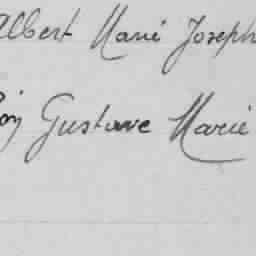 Albert Marie Joseph
Gustave Marie